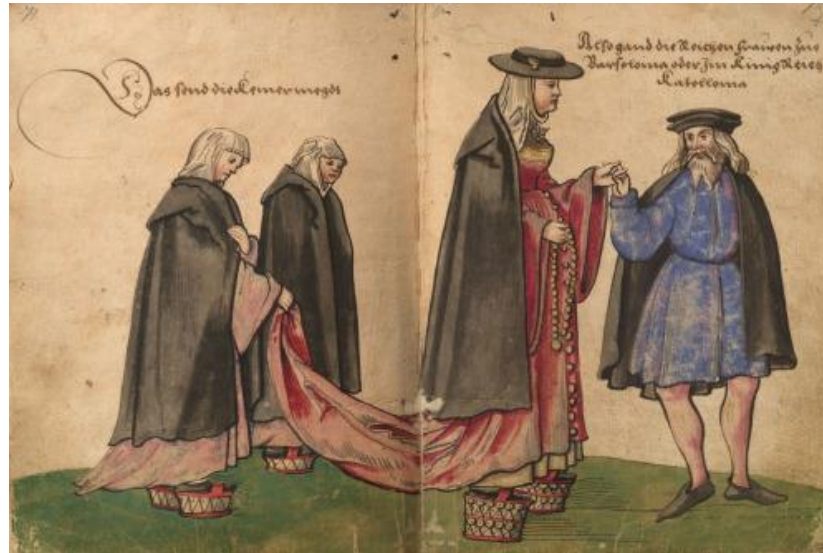 Das send die Kemermegdt
Also gand die Reichen frawen zue
Barsolonia oder jm Kinig Reich
Katollonia